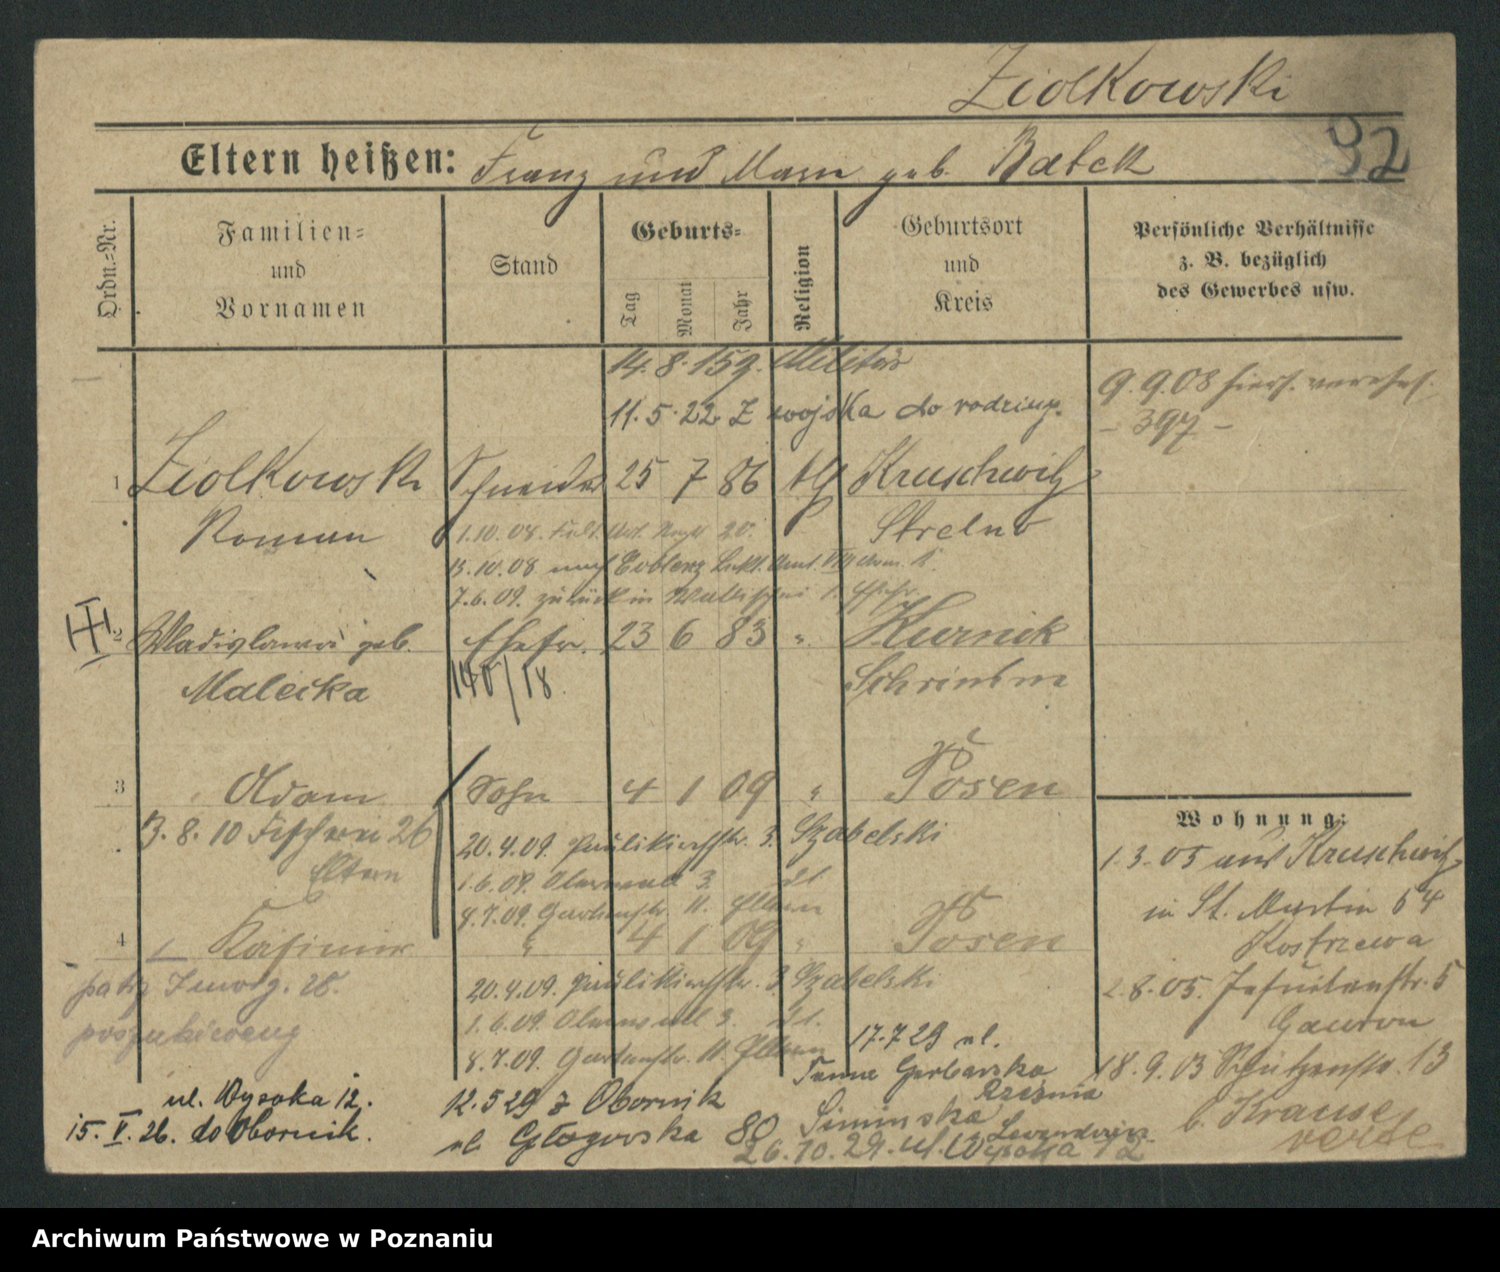 Ziolkowski
92
Eltern heißen: Franz und Marie geb. Ratek
Ordn.-Nr.
Familien-
und
Vornamen
Stand
Geburts-
Tag
Monat
Jahr
Religion
Geburtsort
und
Kreis
Persönliche Verhältnisse
z. B. bezüglich
des Gewerbes usw.
14. 8. 159. Militär
11. 5. 22 Z wojska do rodziny.
9. 9. 08 hiers. verehel.
- 397 -
1 Ziolkowski Schneider 25 7 86 klh Kruschwitz
Roman Strelno
1. 10. 08. 20.
13. 10. 08 nach Coblenz
7. 6. 09. zurück in Wallischei 1.
2 Wladislawa geb. Ehefr. 23 6 83 " Kurnik
Malecka 140/18. Schrimm
3 Adam Sohn 4 1 09 " Posen
3. 8. 10 Fischerei 26
Eltern
20. 4. 09. Paulikirchstr. 3. Szabelski
1. 6. 09. 3.
8. 7. 09. Gartenstr. 11. Eltern
4 Kasimir " 4 1 09 " Posen
patrz Inwrg. 28.
poszukiwany
20. 4. 09. Paulikirchstr. 3. Szabelski
1. 6. 09. 3.
8. 7. 09. Gartenstr. 11. Eltern
Wohnung:
1. 3. 05 aus Kruschwitz
in St. Martin 64
Kostrzewa
2. 8. 05. Jesuitenstr. 5
Gawron
18. 9. 03 Schützenstr. 13
b. Krause
verte
ul. Wysoka 12.
15. V. 26. do Obornik.
12. 5 29 z Obornik
ul. Głogowska 80
17. 7 29 ul.
Garbarska
Rzeźnia
26. 10. 29. ul. Wysoka 12
Archiwum Państwowe w Poznaniu